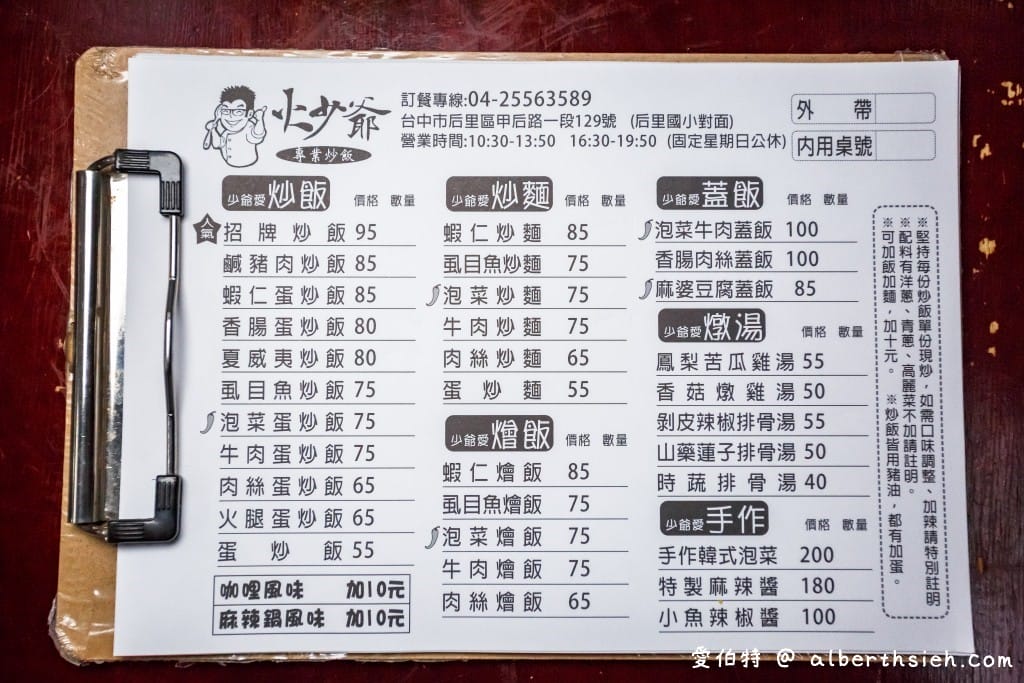 小少爺
專業炒飯
訂餐專線:04-25563589
台中市后里區甲后路一段129號 (后里國小對面)
營業時間:10:30-13:50 16:30-19:50 (固定星期日公休)
外帶
內用桌號
少爺愛 炒飯 價格 數量
人氣 招牌炒飯 95
鹹豬肉炒飯 85
蝦仁蛋炒飯 85
香腸蛋炒飯 80
夏威夷炒飯 80
虱目魚炒飯 75
泡菜蛋炒飯 75
牛肉蛋炒飯 75
肉絲蛋炒飯 65
火腿蛋炒飯 65
蛋炒飯 55
咖哩風味 加10元
麻辣鍋風味 加10元
少爺愛 炒麵 價格 數量
蝦仁炒麵 85
虱目魚炒麵 75
泡菜炒麵 75
牛肉炒麵 75
肉絲炒麵 65
蛋炒麵 55
少爺愛 燴飯 價格 數量
蝦仁燴飯 85
虱目魚燴飯 75
泡菜燴飯 75
牛肉燴飯 75
肉絲燴飯 65
少爺愛 蓋飯 價格 數量
泡菜牛肉蓋飯 100
香腸肉絲蓋飯 100
麻婆豆腐蓋飯 85
少爺愛 燉湯 價格 數量
鳳梨苦瓜雞湯 55
香菇燉雞湯 50
剝皮辣椒排骨湯 55
山藥蓮子排骨湯 50
時蔬排骨湯 40
少爺愛 手作 價格 數量
手作韓式泡菜 200
特製麻辣醬 180
小魚辣椒醬 100
※堅持每份炒飯單份現炒，如需口味調整、加辣請特別註明
※配料有洋蔥、青蔥、高麗菜不加請註明。
※可加飯加麵，加十元。 ※炒飯皆用豬油，都有加蛋。
愛伯特 @ alberthsieh.com